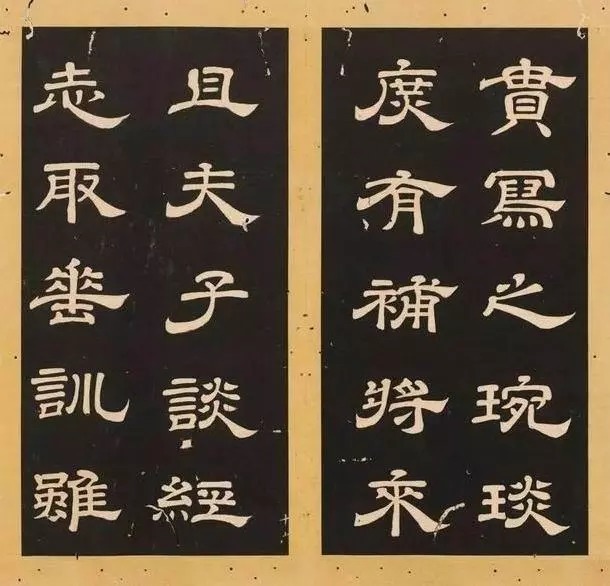 貫寫之琬琰
庶有補將來
且夫子談經
志取垂訓雖